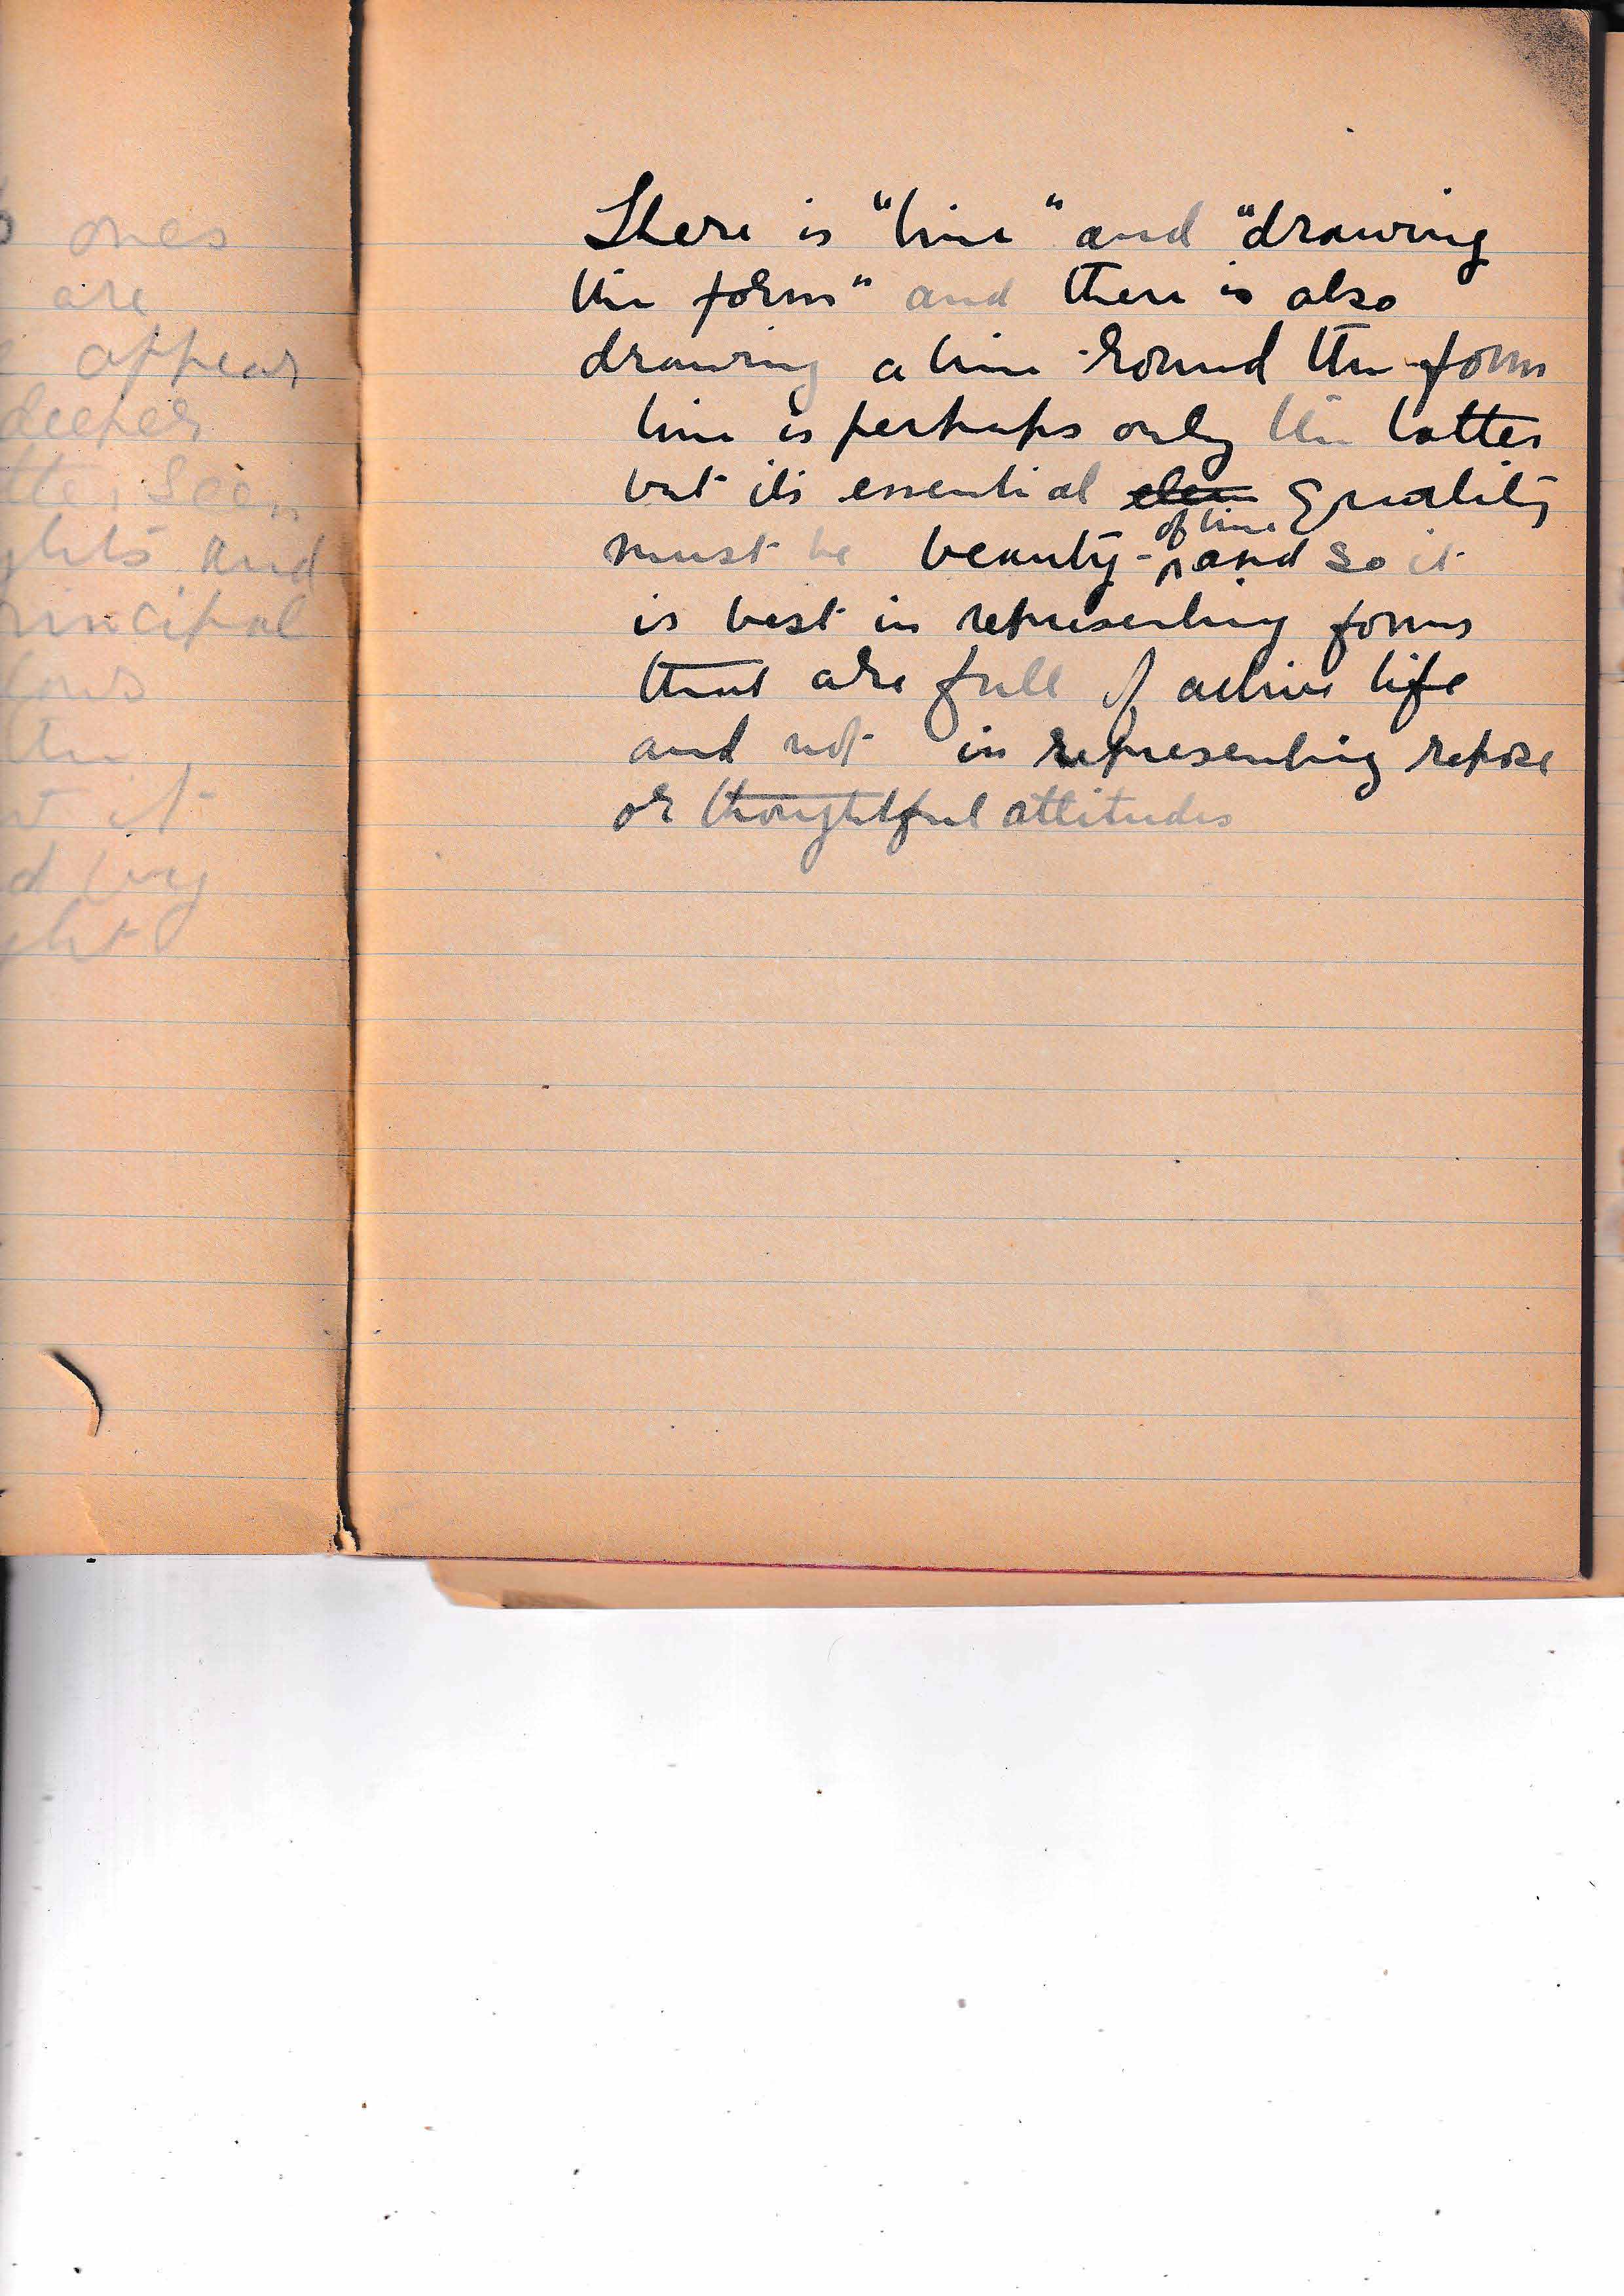 ones
are
appear
deeper
seen
and
it
There is "line" and "drawing
the form" and there is also
drawing a line round the form
line is perhaps only the latter
but its essential ~~elem~~ quality
must be beauty - of line and so it
is best in representing forms
that are full of active life
and not in representing repose
or thoughtful attitudes